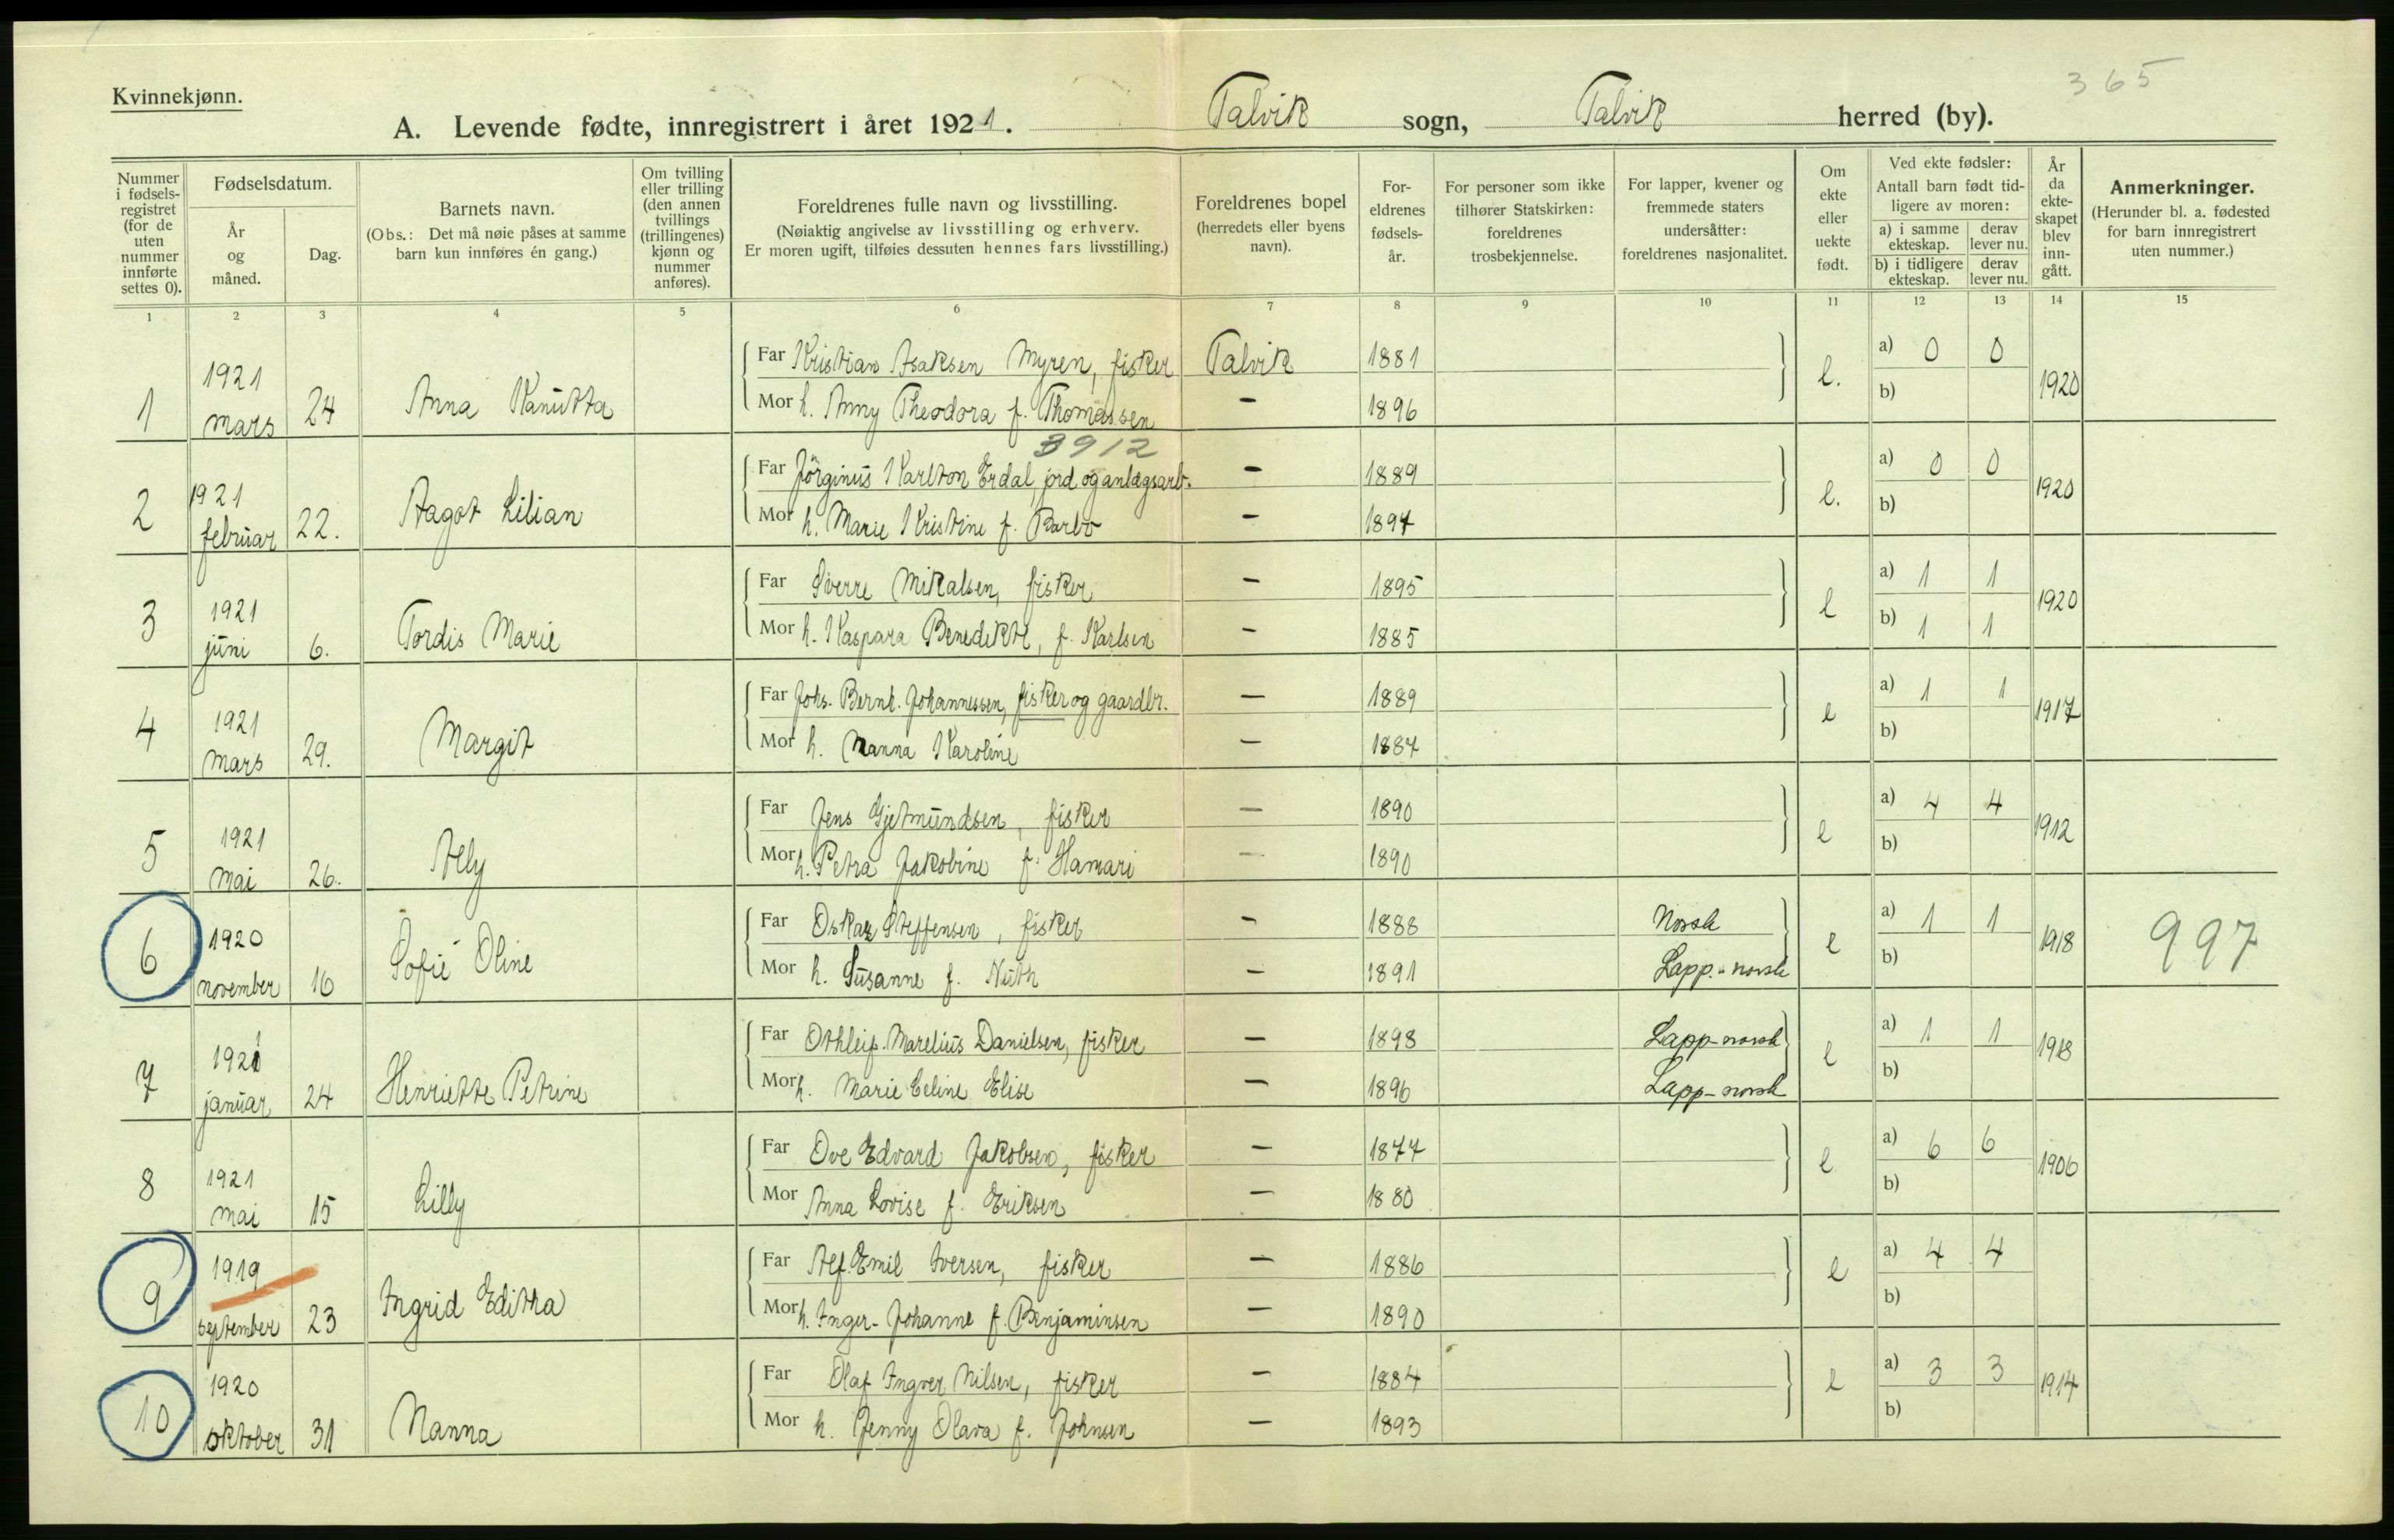 365
Kvinnekjønn.
A. Levende fødte, innregistrert i året 1921. Talvik sogn, Talvik herred (by).
Nummer i fødsels-registret (for de uten nummer innførte settes 0).
Fødselsdatum.
År og måned.
Dag.
Barnets navn.
(Obs.: Det må nøie påses at samme barn kun innføres én gang.)
Om tvilling eller trilling (den annen tvillings (trillingenes) kjønn og nummer anføres).
Foreldrenes fulle navn og livsstilling.
(Nøiaktig angivelse av livsstilling og erhverv.
Er moren ugift, tilføies dessuten hennes fars livsstilling.)
Foreldrenes bopel (herredets eller byens navn).
For-eldrenes fødsels-år.
For personer som ikke tilhører Statskirken: foreldrenes trosbekjennelse.
For lapper, kvener og fremmede staters undersåtter: foreldrenes nasjonalitet.
Om ekte eller uekte født.
Ved ekte fødsler:
Antall barn født tid-ligere av moren:
a) i samme ekteskap. derav lever nu.
b) i tidligere ekteskap. derav lever nu.
År da ekte-skapet blev inn-gått.
Anmerkninger.
(Herunder bl. a. fødested for barn innregistrert uten nummer.)
1 2 3 4 5 6 7 8 9 10 11 12 13 14 15
1 1921 mars 24 Anna Kanutta
Far Kristian Isaksen Myren, fisker Talvik 1881 e. a) 0 0 1920
Mor h. Anny Theodora f. Thomassen – 1896 b)
3912
2 1921 februar 22. Aagot Lilian
Far Jörginus Karlton Erdal, jord og anlægsarb. – 1889 e. a) 0 0 1920
Mor h. Marie Kristine f. Barbo – 1897 b)
3 1921 juni 6. Tordis Marie
Far Sverre Mikalsen, fisker – 1895 e a) 1 1 1920
Mor h. Kaspara Benedikte, f. Karlsen – 1885 b) 1 1
4 1921 mars 29. Margit
Far Johs. Bernh. Johannessen, fisker og gaardbr. – 1889 e a) 1 1 1917
Mor h. Nanna Karoline – 1887 b)
5 1921 mai 26. Ally
Far Jens Gjetmundsen, fisker – 1890 e a) 4 4 1912
Mor h. Petra Jakobine f. Hamari – 1890 b)
6 1920 november 16 Sofie Oline
Far Oskar Steffensen, fisker – 1888 Norsk e a) 1 1 1918 997
Mor h. Susanne f. Nuth – 1891 Lapp.-norsk b)
7 1921 januar 24 Henriette Petrine
Far Othleif Marelius Danielsen, fisker – 1898 Lapp-norsk e a) 1 1 1918
Mor h. Marie Celine Elise – 1896 Lapp-norsk b)
8 1921 mai 15 Lilly
Far Ove Edvard Jakobsen, fisker – 1877 e a) 6 6 1906
Mor Anna Lovise f. Eriksen – 1880 b)
9 1919 september 23 Ingrid Editha
Far Alf. Emil Iversen, fisker – 1886 e a) 4 4
Mor h. Inger-Johanne f. Benjaminsen – 1890 b)
10 1920 oktober 31 Nanna
Far Olaf Ingver Nilsen, fisker – 1884 e a) 3 3 1914
Mor h. Jenny Olava f. Johnsen – 1893 b)